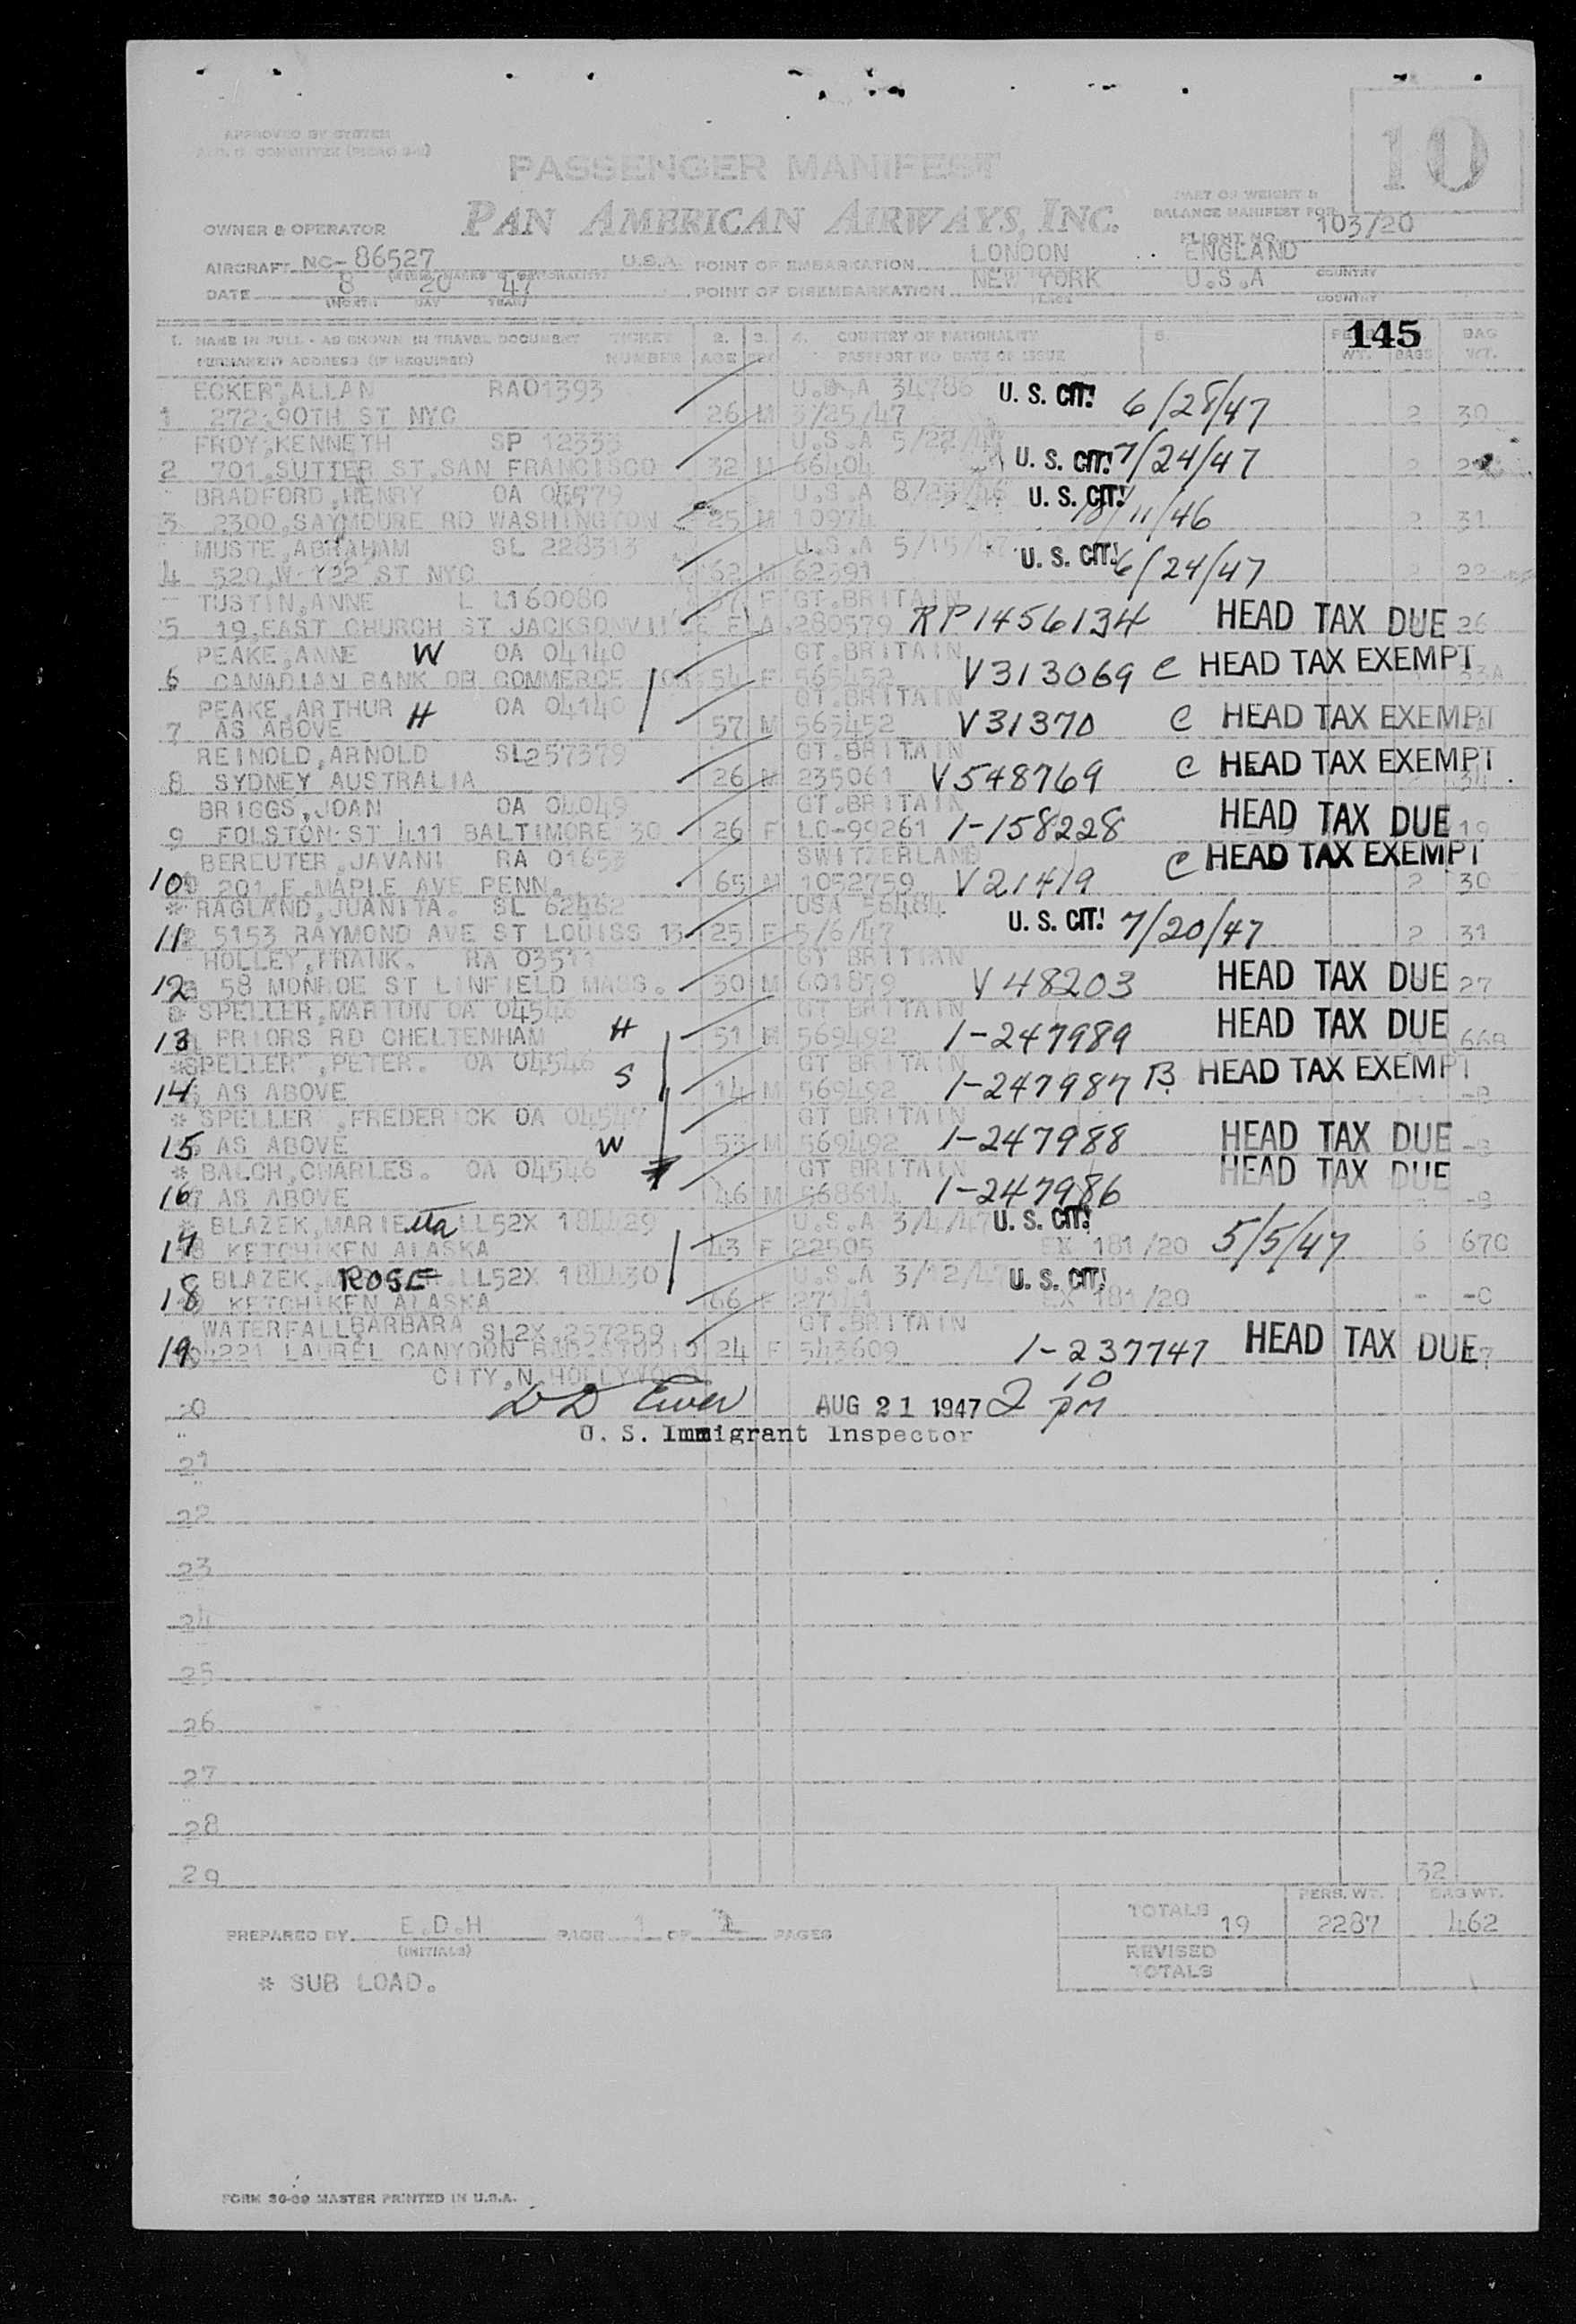 APPROVED BY SYSTEM
10
PASSENGER MANIFEST
PART OF WEIGHT &
PAN AMERICAN AIRWAYS, INC.
BALANCE MANIFEST FOR
OWNER & OPERATOR
FLIGHT NO. 103/20
AIRCRAFT NC-86527 U.S.A. POINT OF EMBARKATION LONDON ENGLAND COUNTRY
DATE 8 20 47 POINT OF DISEMBARKATION NEW YORK U.S.A COUNTRY
(MONTH) DAY YEAR PLACE
145
1. NAME IN FULL - AS SHOWN IN TRAVEL DOCUMENT TICKET 2. 3. 4. COUNTRY OF NATIONALITY 5. BAG
PERMANENT ADDRESS (IF REQUIRED) NUMBER AGE SEX PASSPORT NO. DATE OF ISSUE WT. BAGS WT.
ECKER,ALLAN RA01393 U.S.A 34786 U. S. CIT! 6/28/47
1 272,90TH ST NYC 26 M 3/25/47 2 30
FROY,KENNETH SP 12333 U.S.A 5/22/47 U. S. CIT! 7/24/47
2 701,SUTTER ST.SAN FRANCISCO 32 M 66404 2
BRADFORD,HENRY OA U.S.A U. S. CIT! 10/11/46
3 2300,SAYMOURE RD WASHINGTON 25 M 10974 2 31
MUSTE,ABRAHAM SL 228313 U.S.A 5/15/47 U. S. CIT! 6/24/47
4 520,W 122 ST NYC 62 M 62391 2 22
TUSTIN,ANNE L L160080 37 F GT.BRITAIN RP1456134 HEAD TAX DUE
5 19,EAST CHURCH ST JACKSONVILLE FLA. 280579 26
PEAKE,ANNE W OA 04140 GT.BRITAIN V313069 C HEAD TAX EXEMPT
6 CANADIAN BANK OF COMMERCE 54 F 565452 53A
PEAKE,ARTHUR H OA 04140 GT.BRITAIN
7 AS ABOVE 57 M 565452 V31370 C HEAD TAX EXEMPT
REINOLD,ARNOLD SL257379 GT.BRITAIN
8 SYDNEY AUSTRALIA 26 M 235061 V548769 C HEAD TAX EXEMPT 34
BRIGGS,JOAN OA 04049 GT.BRITAIN HEAD TAX DUE
9 FOLSTON ST 411 BALTIMORE 30 26 F LO-99261 1-158228 19
BEREUTER,JAVANI RA 01653 SWITZERLAND C HEAD TAX EXEMPT
10 201,E.MAPLE AVE PENN. 65 M 1052759 V21419 2 30
* RAGLAND,JUANITA. SL 62462 USA 56484 U. S. CIT! 7/20/47
11 5153 RAYMOND AVE ST LOUISS 13 25 F 5/6/47 2 31
HOLLEY,FRANK. RA 03511 GT BRITIAN
12 58 MONROE ST LINFIELD MASS. 30 M 601879 V48203 HEAD TAX DUE 27
* SPELLER,MARION OA 04546 GT BRITAIN
13 PRIORS RD CHELTENHAM H 51 569492 1-247989 HEAD TAX DUE 66B
*SPELLER ,PETER. OA 04546 GT BRITAIN
14 AS ABOVE S 14 M 569492 1-247987 B HEAD TAX EXEMPT -B
* SPELLER ,FREDERICK OA 04547 GT BRITAIN
15 AS ABOVE W 53 M 569492 1-247988 HEAD TAX DUE -B
* BALCH,CHARLES. OA 04546 GT BRITAIN HEAD TAX DUE
16 AS ABOVE 46 M 568614 1-247986 -B
* BLAZEK,MARIEtta LL52X 184429 U.S.A 3/4/47 U. S. CIT!
17 KETCHIKEN ALASKA 43 F 22505 EX 181/20 5/5/47 6 67C
BLAZEK, ROSE LL52X 184430 U.S.A 3/12/47 U. S. CIT!
18 KETCHIKEN ALASKA 66 F EX 181/20 - -C
WATERFALL,BARBARA SL2X 257259 GT.BRITAIN
19 4221 LAUREL CANYOON RAD-STUDIO 24 F 543609 1-237747 HEAD TAX DUE
CITY,N.HOLLYWOOD
20 AUG 21 1947 2 10 PM
U. S. Immigrant Inspector
21
22
23
24
25
26
27
28
29 32
TOTALS 19 PERS. WT. 2287 BAG WT. 462
PREPARED BY E.D.H PAGE 1 OF 1 PAGES
(INITIALS)
REVISED
TOTALS
* SUB LOAD.
FORM 30-39 MASTER PRINTED IN U.S.A.